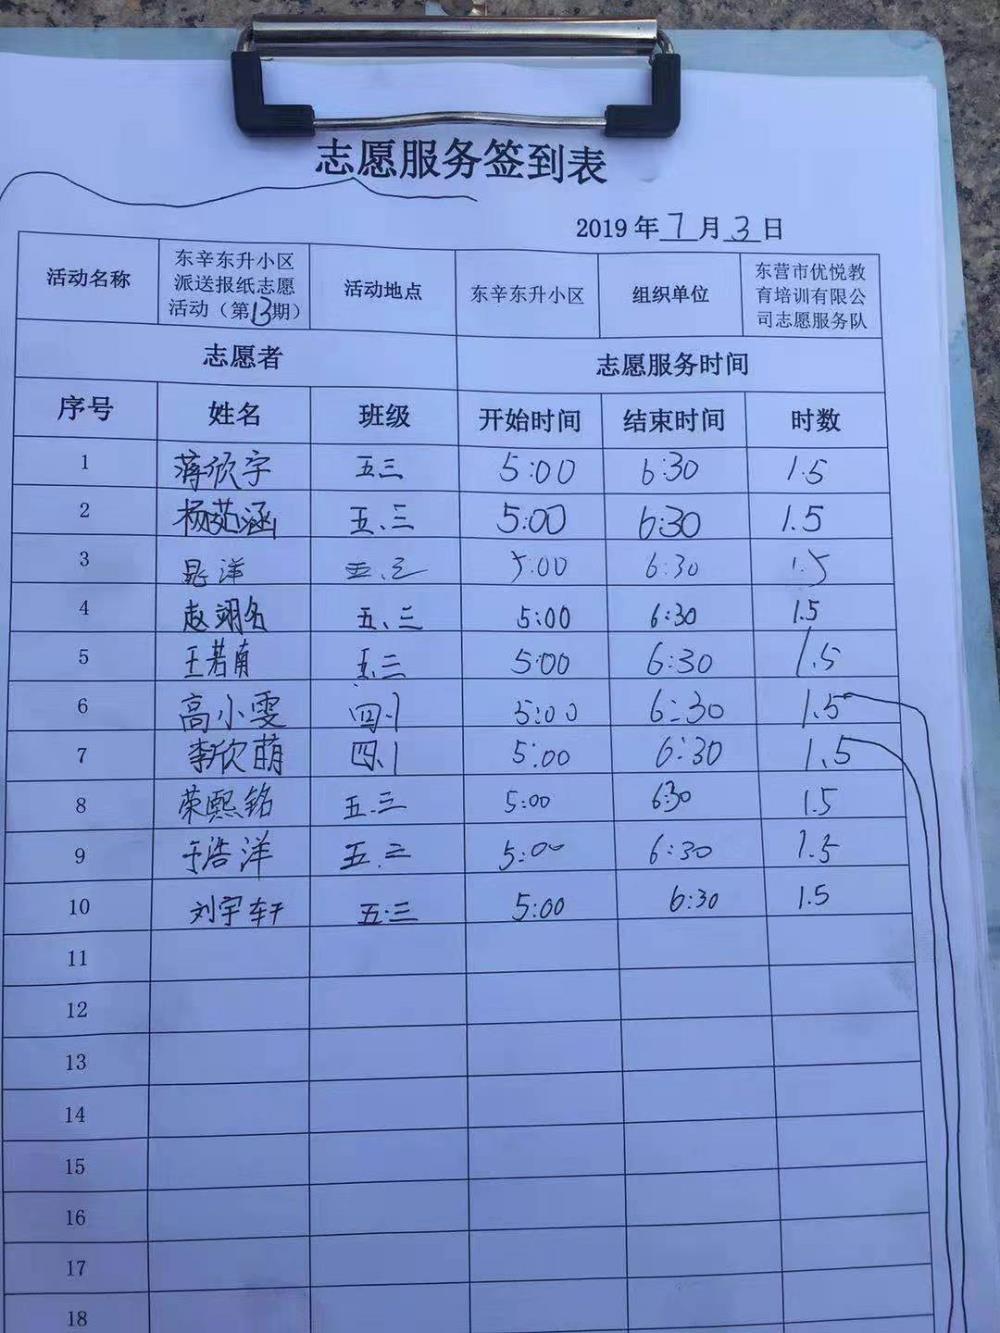 志愿服务签到表
2019 年 7 月 3 日
活动名称 东辛东升小区派送报纸志愿活动（第13期） 活动地点 东辛东升小区 组织单位 东营市优悦教育培训有限公司志愿服务队
志愿者 志愿服务时间
序号 姓名 班级 开始时间 结束时间 时数
1 蒋欣宇 五三 5:00 6:30 1.5
2 杨茹涵 五.三 5:00 6:30 1.5
3 晁洋 五.三 5:00 6:30 1.5
4 赵翊名 五.三 5:00 6:30 1.5
5 王若南 五.三 5:00 6:30 1.5
6 高小雯 四.1 5:00 6:30 1.5
7 李欣萌 四.1 5:00 6:30 1.5
8 荣熙铭 五.三 5:00 630 1.5
9 于浩洋 五.三 5:00 6:30 1.5
10 刘宇轩 五.三 5:00 6:30 1.5
11
12
13
14
15
16
17
18